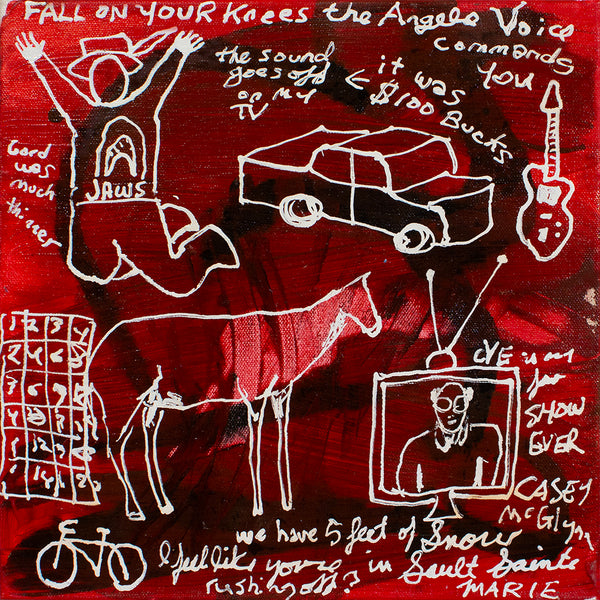 FALL ON YOUR Knees the Angels Voice
commands
You
the sound
goes off
on my
TV
← it was
$100 Bucks
Gord
was
much
thinner
JAWS
1 2 3 4
is my
fav
SHOW
EVER
CASEY
McGlynn
we have 5 feet of Snow
I feel like youre in Sault Sainte
rushing off?
MARIE